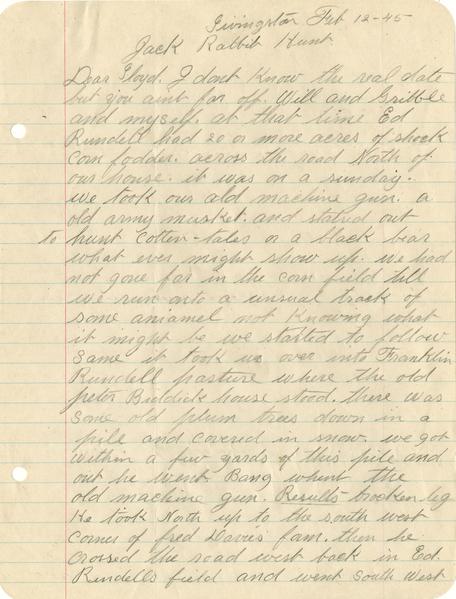 Livingston Feb 12-45
Jack Rabbit Hunt
Dear Floyd. I dont know the real date
but you aint far off. Will and Gribble
and myself. at that time Ed
Rundell had 20 or more acres of shock
corn fodder. across the road North of.
our house. it was on a sunday.
we took our old machine gun. a
old army musket. and stated out
to hunt cotten-tales or a black bear
what ever might show up. we had
not gone far in the corn field till
we run onto a unusual track of
some aniamel not knowing what
it might be we started to follow
same it took us over into Franklin
Rundell pasture where the old
peter Biddick house stood. there was
some old plum trees down in a
pile and covered in snow. we got
within a few yards of this pile and
out he went. Bang whent the
old machine gun. Results brocken leg
He took North up to the south west
corner of fred Davies fam. then he
crossed the road west back in Ed.
Rundells field and went South West